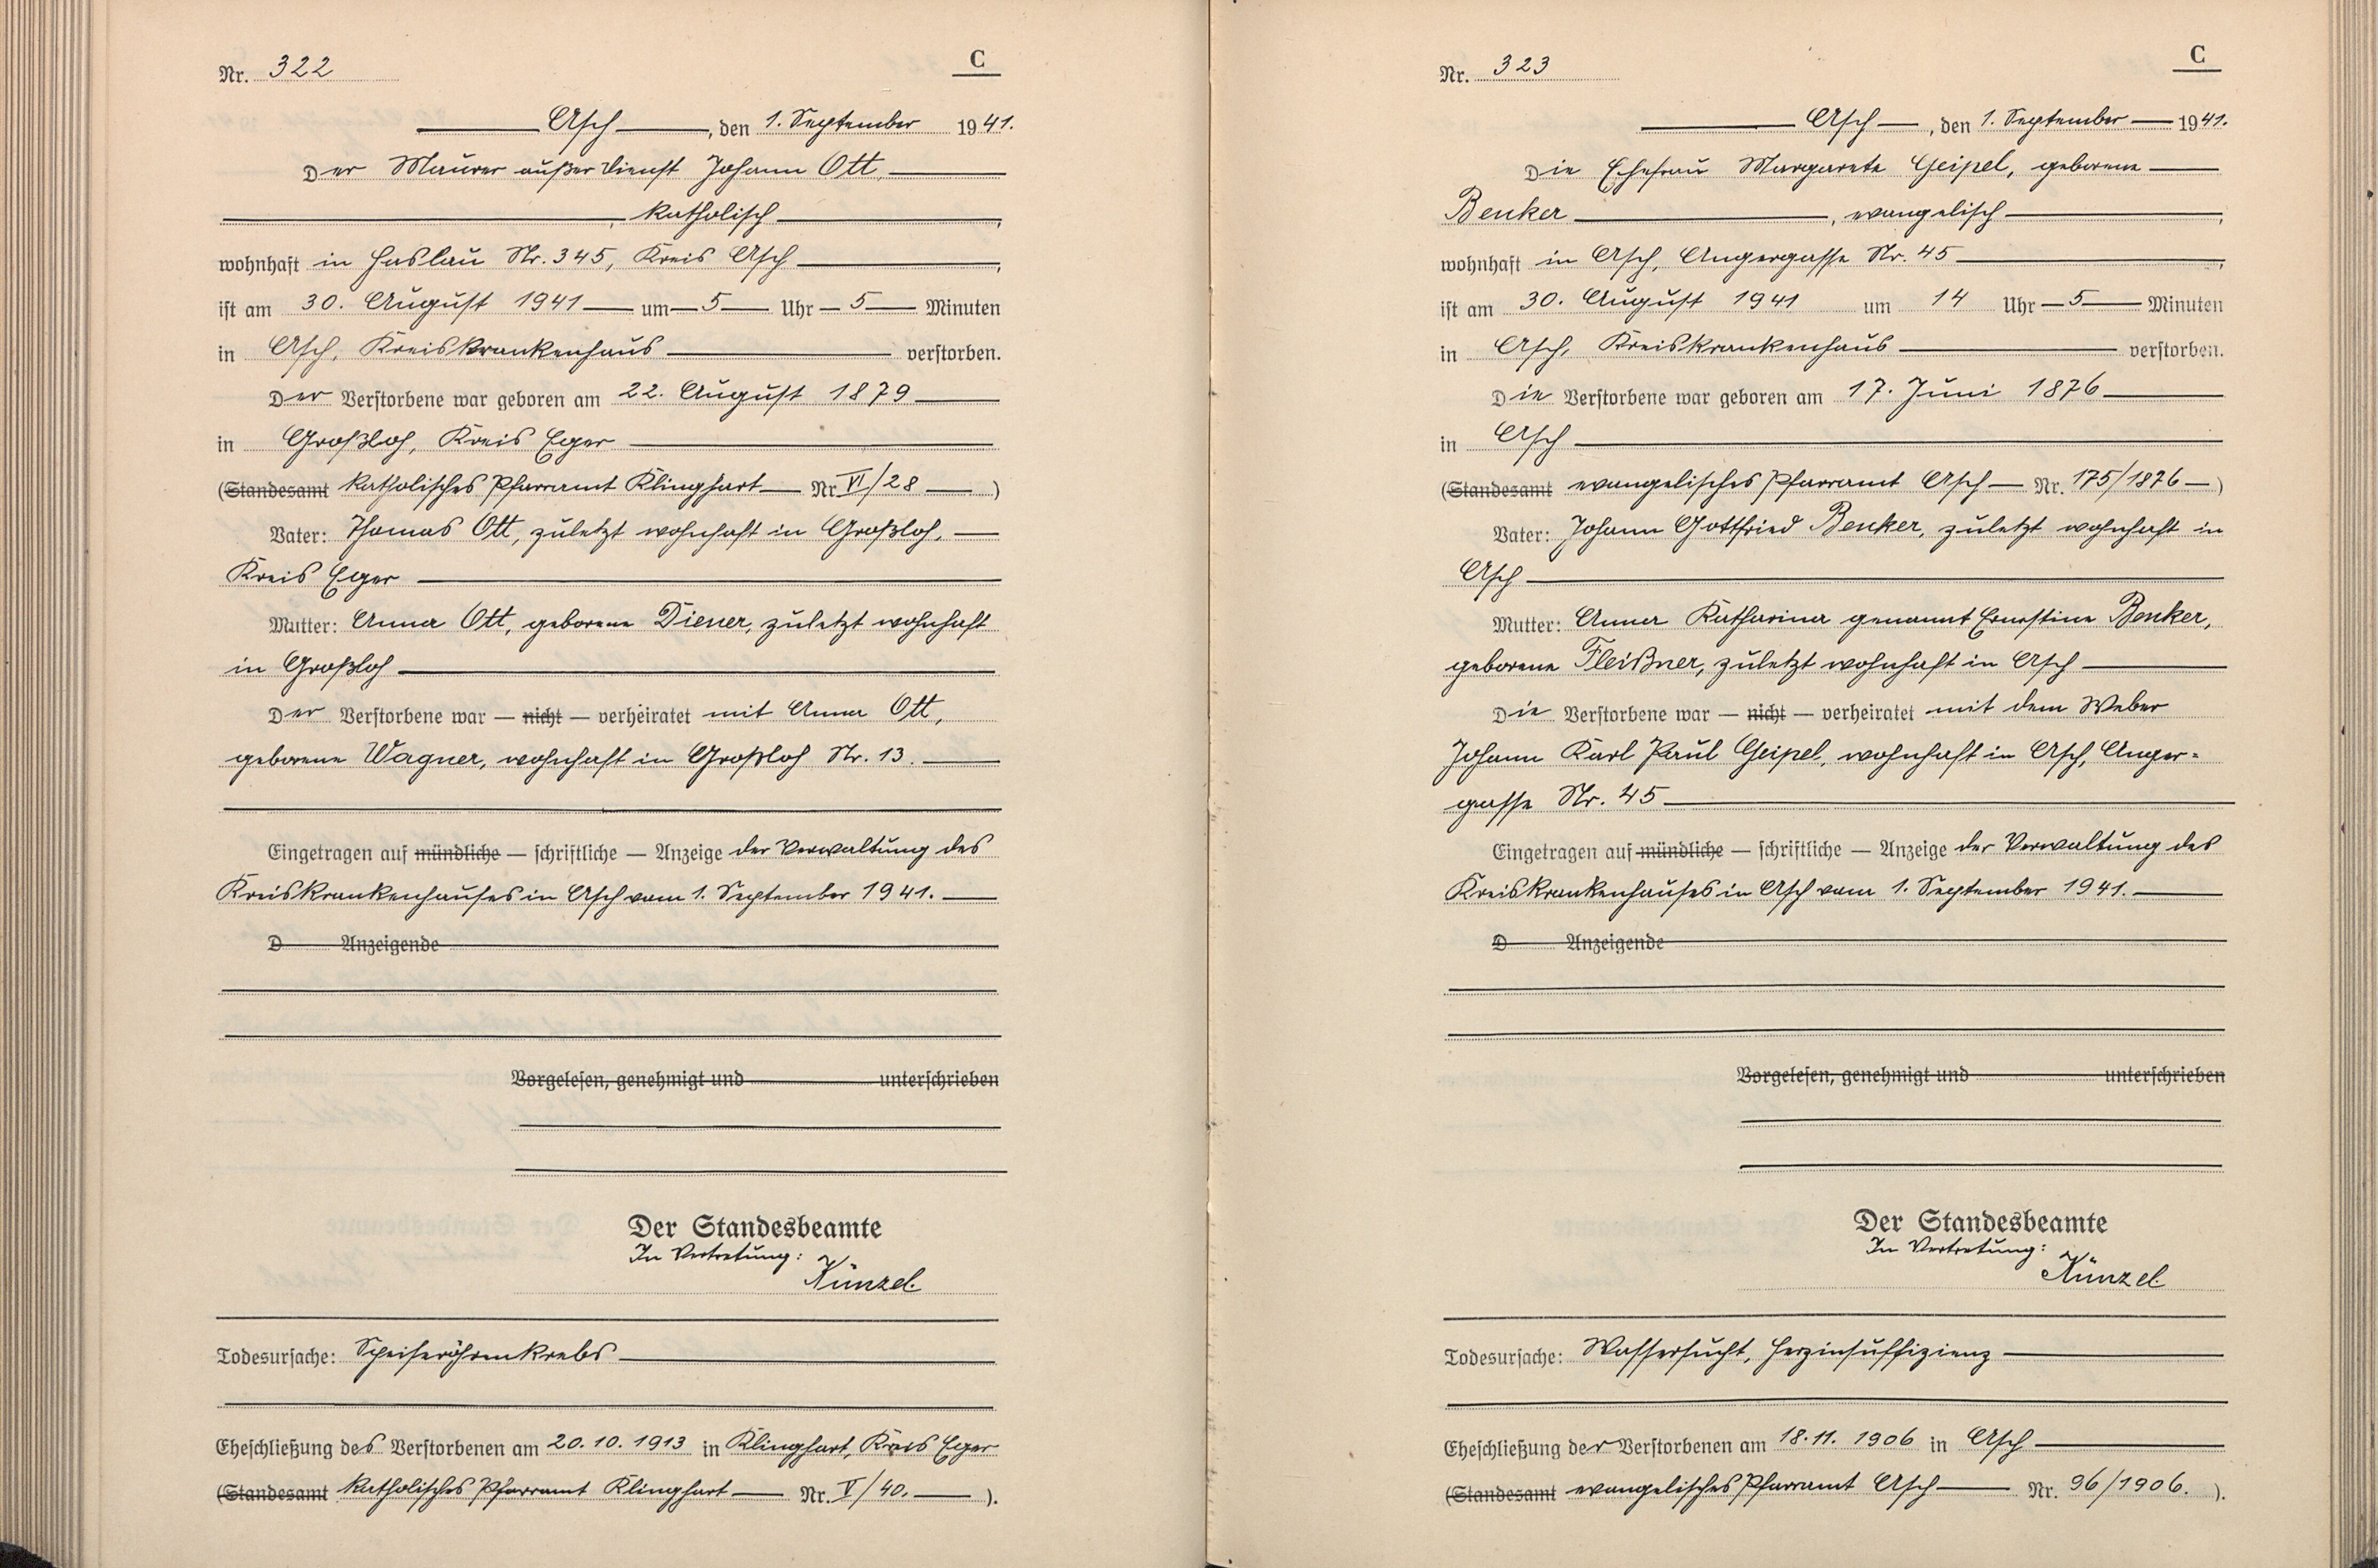 Nr. 322
C
Asch, den 1. September 1941.
Der Maurer außer Dienst Johann Ott,
, katholisch,
wohnhaft in Haslau Nr. 345, Kreis Asch,
ist am 30. August 1941 um 5 Uhr 5 Minuten
in Asch, Kreiskrankenhaus verstorben.
Der Verstorbene war geboren am 22. August 1879
in Großloh, Kreis Eger
(Standesamt katholisches Pfarramt Klinghart Nr. VI/28)
Vater: Thomas Ott, zuletzt wohnhaft in Großloh,
Kreis Eger
Mutter: Anna Ott, geborene Diener, zuletzt wohnhaft
in Großloh
Der Verstorbene war — nicht — verheiratet mit Anna Ott,
geborene Wagner, wohnhaft in Großloh Nr. 13.
Eingetragen auf mündliche — schriftliche — Anzeige der Verwaltung des
Kreiskrankenhauses in Asch vom 1. September 1941.
D Anzeigende
Vorgelesen, genehmigt und unterschrieben
Der Standesbeamte
In Vertretung:
Künzel.
Todesursache: Speiseröhrenkrebs
Eheschließung des Verstorbenen am 20.10.1913 in Klinghart, Kreis Eger
(Standesamt katholisches Pfarramt Klinghart Nr. V/40.).
Nr. 323
C
Asch, den 1. September 1941.
Die Ehefrau Margareta Geipel, geborene
Benker, evangelisch,
wohnhaft in Asch, Angergasse Nr. 45,
ist am 30. August 1941 um 14 Uhr 5 Minuten
in Asch, Kreiskrankenhaus verstorben.
Die Verstorbene war geboren am 17. Juni 1876
in Asch
(Standesamt evangelisches Pfarramt Asch Nr. 175/1876)
Vater: Johann Gottfried Benker, zuletzt wohnhaft in
Asch
Mutter: Anna Katharina genannt Ernestine Benker,
geborene Fleißner, zuletzt wohnhaft in Asch
Die Verstorbene war — nicht — verheiratet mit dem Weber
Johann Karl Paul Geipel, wohnhaft in Asch, Anger-
gasse Nr. 45
Eingetragen auf mündliche — schriftliche — Anzeige der Verwaltung des
Kreiskrankenhauses in Asch vom 1. September 1941.
D Anzeigende
Vorgelesen, genehmigt und unterschrieben
Der Standesbeamte
In Vertretung:
Künzel.
Todesursache: Wassersucht, Herzinsuffizienz
Eheschließung der Verstorbenen am 18.11.1906 in Asch
(Standesamt evangelisches Pfarramt Asch Nr. 96/1906.).